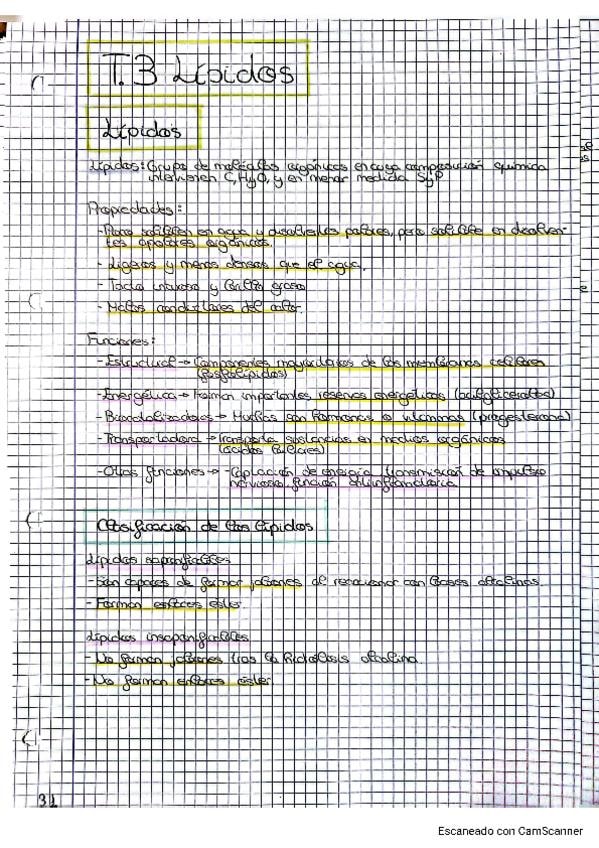 T.3 Lípidos
Lípidos
Lípidos: Grupo de moléculas orgánicas en cuya composición química
intervienen C, H y O, y en menor medida S y P
Propiedades:
- Poco solubles en agua y disolventes polares, pero soluble en disolven-
tes apolares orgánicos.
- Ligeros y menos densos que el agua.
- Tacto untuoso y brillo graso
- Malos conductores del calor.
Funciones:
- Estructural → Componentes mayoritarios de las membranas celulares
(fosfolípidos)
- Energética → Forman importantes reservas energéticas (acilglicéridos)
- Biocatalizadores → Muchas son hormonas o vitaminas (progesterona)
- Transportadora → Transporta sustancias en medios orgánicos
(ácidos biliares)
- Otras funciones → - Captación de energía, transmisión de impulso
nervioso, función antiinflamatoria
Clasificación de los lípidos
Lípidos saponificables
- Son capaces de formar jabones al reaccionar con bases alcalinas.
- Forman enlaces éster
Lípidos insaponificables
- No forman jabones tras la hidrólisis alcalina.
- No forman enlaces éster
31
Escaneado con CamScanner